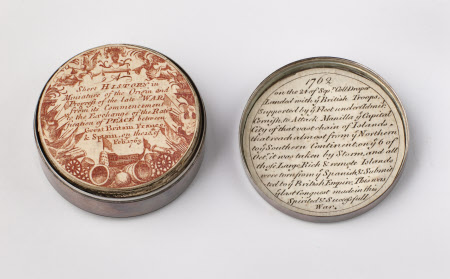 Short HISTORY in
Miniature of the Origin and
Progress of the late WAR
from its Commencement
to the Exchange of the Ratifi-
cation of PEACE between
Great Britain, France,
& Spain, on the 10 of
Feb. 1763
1762
on the 24 of Sep.r Coll Draper
Landed with ye British Troops,
Supported by ye Fleet under Admir.l
Cornish, to Attack Manilla ye Capital
City of that vast chain of Islands,
that reach almost from ye Northern
to ye Southern Continent, on ye 6 of
Oct. it was taken by Storm, and all
those Large Rich & remote Islands
were torn from ye Spanish & Submit
ted to ye British Empire; This was
ye last Conquest made in this
Spirited & Successfull
War.